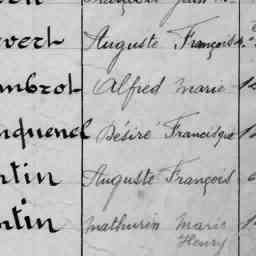 evert Auguste François
mbrot Alfred Marie
nquenel Désiré Francisque
ntin Auguste François
ntin Mathurin Marie
Henry